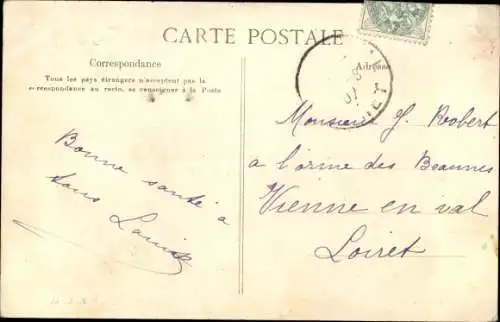 CARTE POSTALE
Correspondance
Tous les pays étrangers n'acceptent pas la
correspondance au recto, se renseigner à la Poste
Adresse
Bonne santé à
tous
Monsieur J. Robert
a l'orme des Beaunes
Vienne en val
Loiret